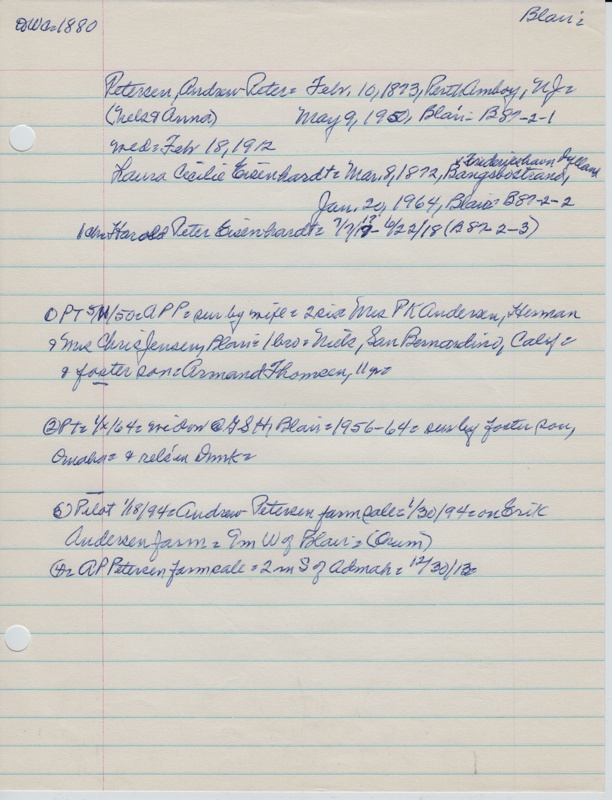 DWC=1880
Blair=
Petersen, Andrew Peter= Febr. 10, 1873, Perth Amboy, NJ=
(Nels & Anna) May 9, 1950, Blair= B87-2-1
med= Feb 18, 1912
Laura Cicilie Eisenhardt= Mar. 8, 1872, Bangsbostrand, Frederickshavn Jylland
Jan. 20, 1964, Blair= B87-2-2
1 ch= Harold Peter Eisenhardt= 7/7/17- 6/22/18 (B87-2-3)
① PT 5/11/50= APP= sur by wife= 2 sis Mrs PK Andersen, Herman
& Mrs Chris Jensen, Blair= 1 bro= Niels, San Bernardino, Calif=
& foster son= Armand Thomsen,
② PT= 1/ /64= widow @ GSH, Blair= 1956-64= sur by foster son,
Omaha= & rels in Dmk=
③ Pilot 1/18/94= Andrew Petersen farm sale= 1/30/94= on Erik
Andersen farm= 9m W of Blair= (Orum)
④= AP Petersen farm sale= 2 m S of Admah= 12/30/13=